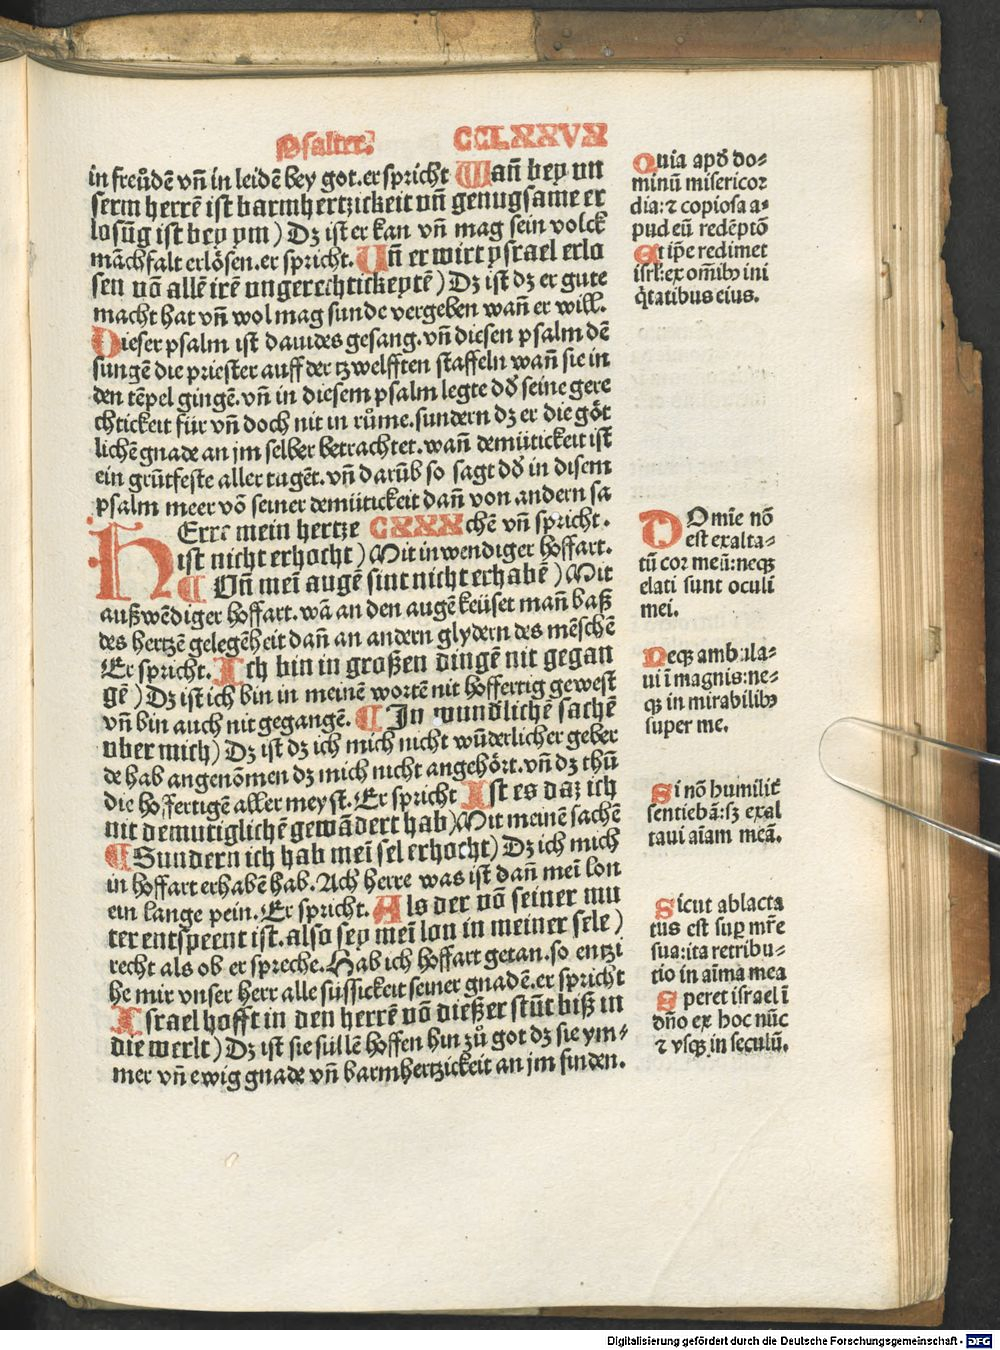 Psalter. CCLXXVX
in freůdē vñ in leidē bey got. er spricht Wañ bey un
serm herrē ist barmhertzickeit vñ genugsame er
losūg ist bey ym) Dz ist er kan vñ mag sein volck
māchfalt erlösen. er spricht. Uñ er wirt ysrael erlo
sen vō allē irē ungerechtickeytē) Dz ist dz er gute
macht hat vñ wol mag sunde vergeben wañ er will.
Dieser psalm ist dauides gesang. vñ diesen psalm dē
sungē die priester auff der tzwelfften staffeln wañ sie in
den tēpel gingē. vñ in diesem psalm legte dð seine gere
chtickeit für vñ doch nit in růme. sundern dz er die göt
lichē gnade an jm selber betrachtet. wañ demütickeit ist
ein grūtfeste aller tugēt. vñ darūb so sagt dð in disem
psalm meer vō seiner demütickeit dañ von andern sa
HErre mein hertze CXXX chē vñ spricht.
ist nicht erhocht) Mit inwendiger hoffart.
¶ Uñ mei augē sint nicht erhabē) Mit
außwēdiger hoffart. wā an den augē keüset mañ baß
des hertzē gelegēheit dañ an andern glydern des mēschē
Er spricht. Ich bin in großen dingē nit gegan
gē) Dz ist ich bin in meinē wortē nit hoffertig gewest
vñ bin auch nit gegangē. ¶ In wundlichē sachē
uber mich) Dz ist dz ich mich nicht wūderlicher geber
de hab angenōmen dz mich nicht angehört. vñ dz thū
die hoffertigē aller meyst. Er spricht Ist es daz ich
nit demutiglichē gewādert hab) Mit meinē sachē
¶ Sundern ich hab mei sel erhocht) Dz ich mich
in hoffart erhabē hab. Ach herre was ist dañ mei lon
ein lange pein. Er spricht. Als der vō seiner mu
ter entspeent ist. also sey mei lon in meiner sele)
recht als ob er spreche. Hab ich hoffart getan. so entzi
he mir vnser herr alle süssickeit seiner gnadē. er spricht
Israel hofft in den herrē vō dießer stūt biß in
die werlt) Dz ist sie süllē hoffen hin zů got dz sie ym-
mer vñ ewig gnade vñ barmhertzickeit an jm finden.
Quia apð do-
minū misericor
dia: ⁊ copiosa a-
pud eū redēptō
Et ip̄e redimet
isrl: ex om̄ibꝰ ini
q̄tatibus eius.
DOmīe nō
est exalta-
tū cor meū: neqꝫ
elati sunt oculi
mei.
Neqꝫ ambula-
ui ī magnis: ne-
qꝫ in mirabilibꝰ
super me.
Si nō humilit̄
sentiebā: sꝫ exal
taui aīam meā.
Sicut ablacta
tus est sup̄ mr̄e
sua: ita retribu-
tio in aīma mea
Speret israel ī
dn̄o ex hoc nūc
⁊ vsqꝫ in seculū.
Digitalisierung gefördert durch die Deutsche Forschungsgemeinschaft - DFG